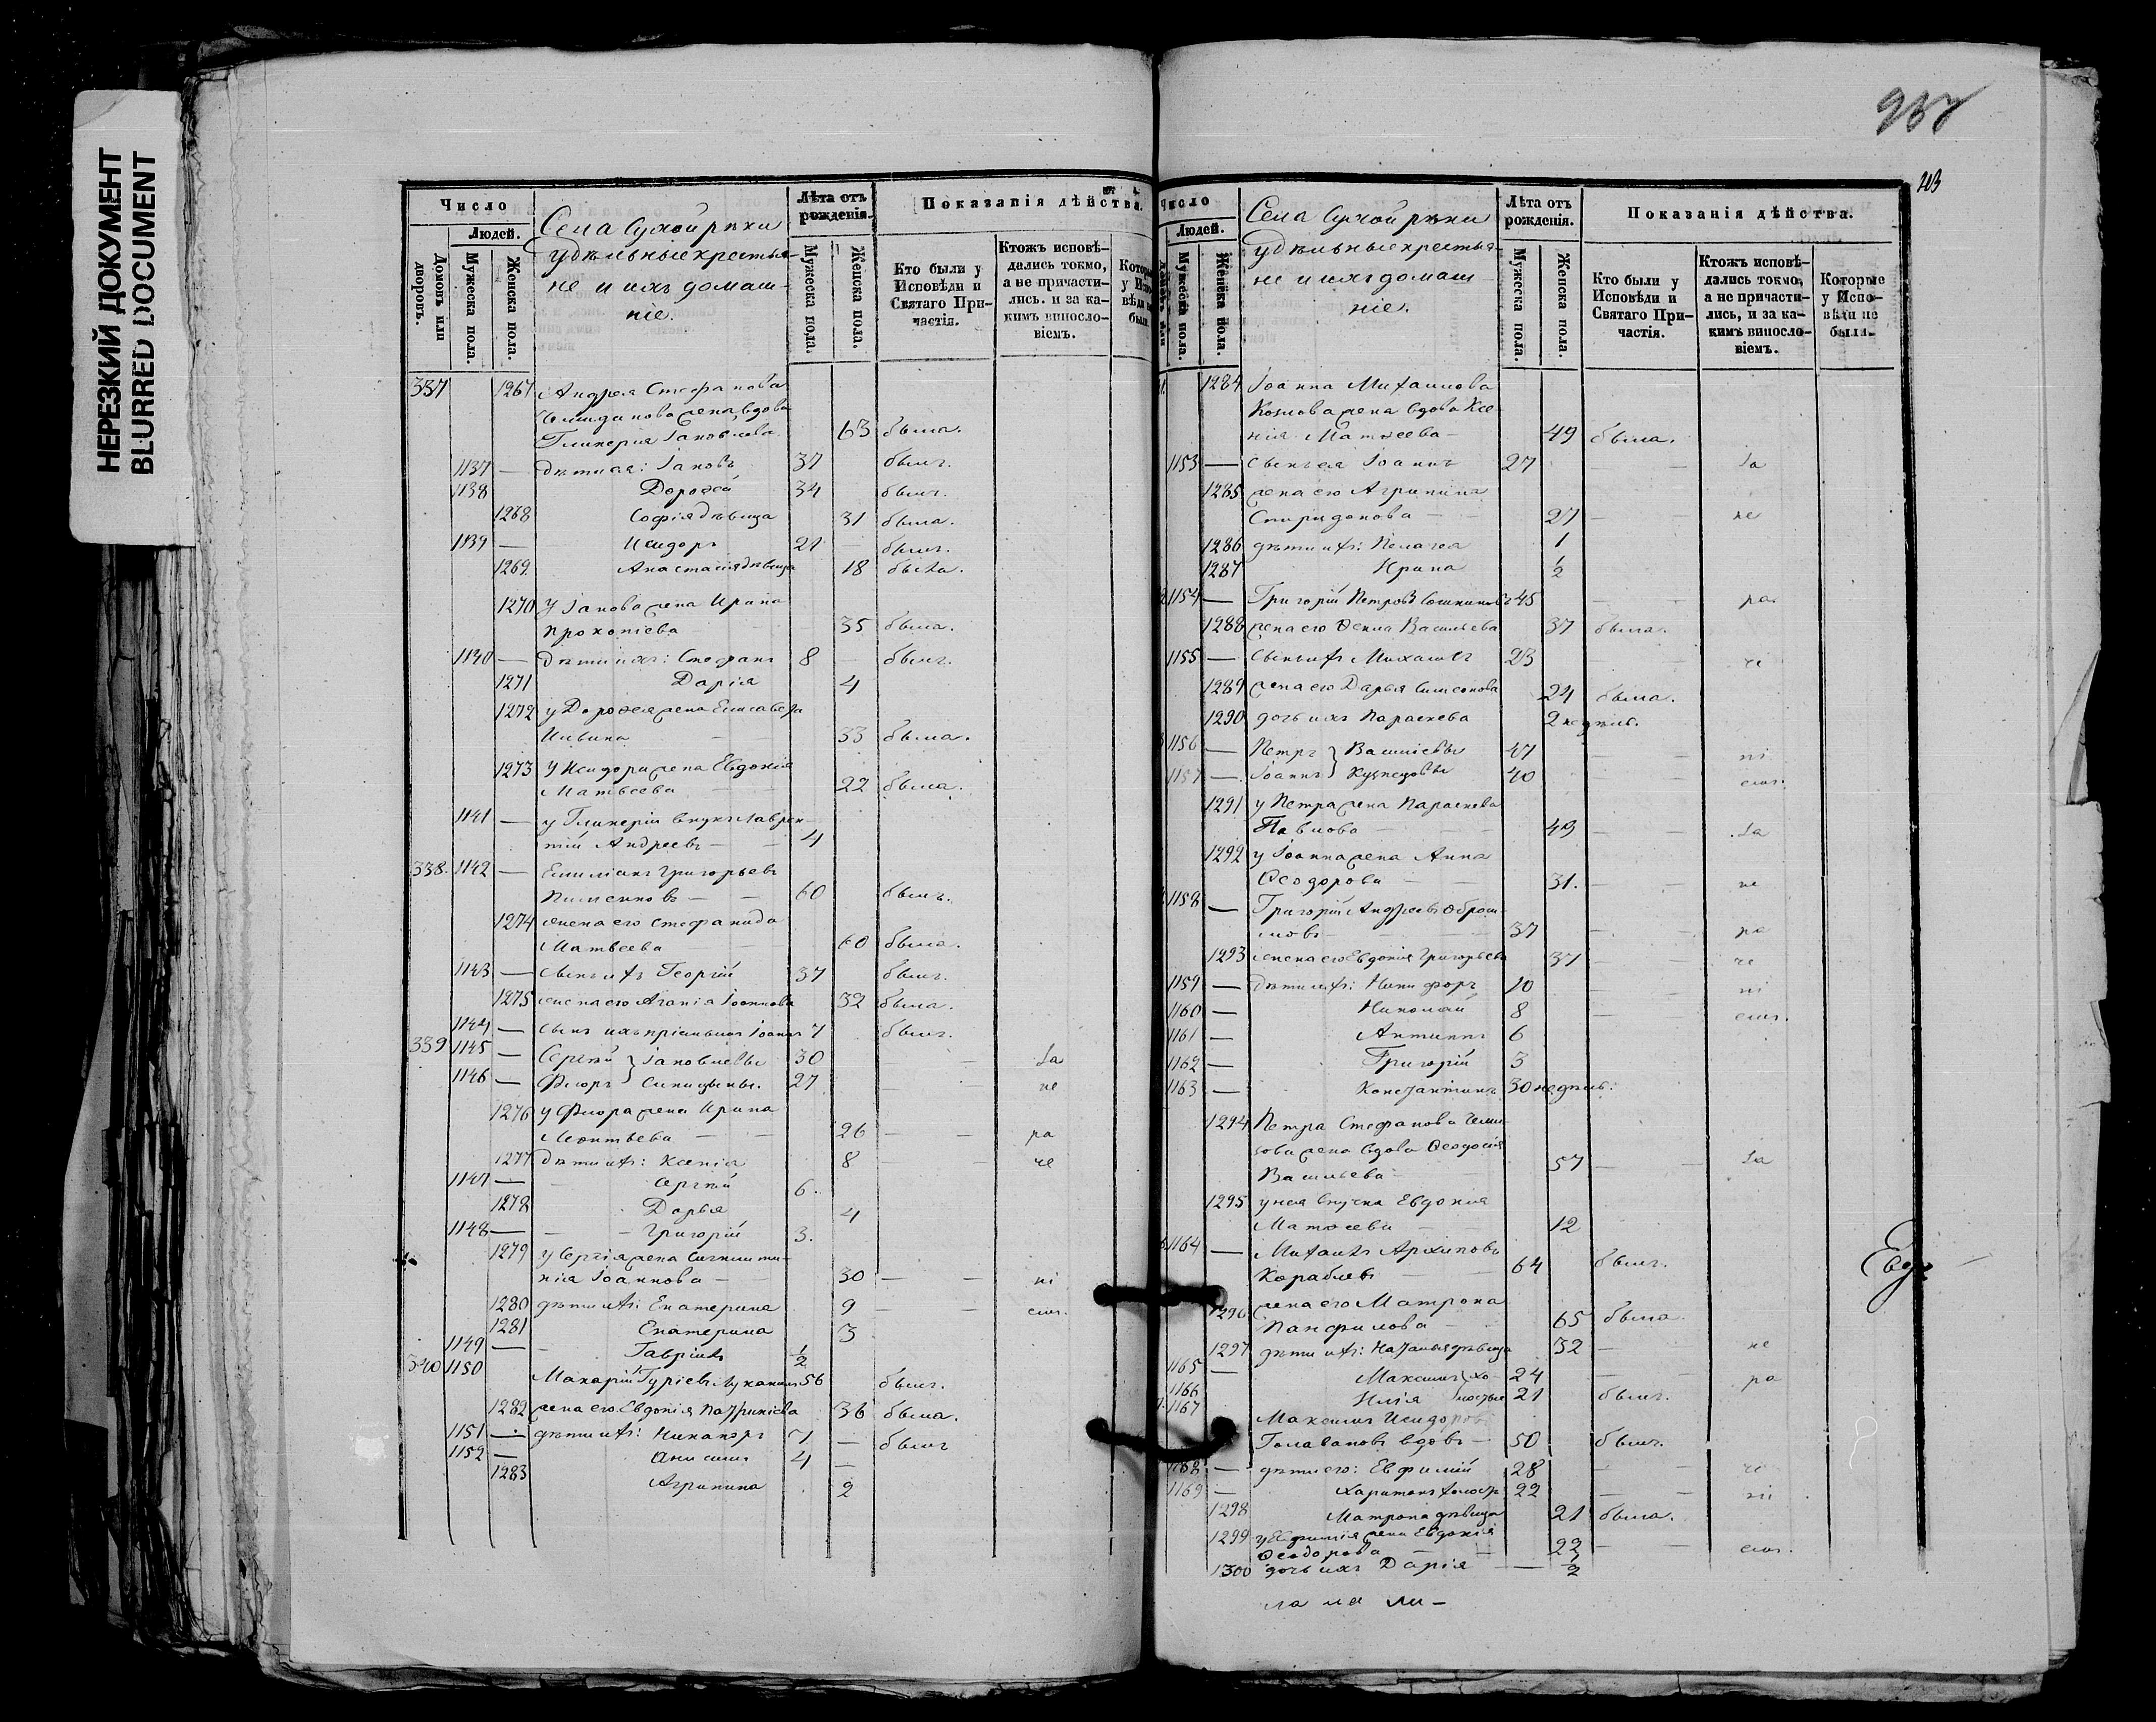 НЕРЕЗКИЙ ДОКУМЕНТ
BLURRED DOCUMENT
Число
Людей.
Домовъ или дворовъ.
Мужеска пола.
Женска пола.
Села Сухой рѣки
удѣльные крестья-
не и ихъ домаш-
ніе.
Лѣта отъ рожденія.
Мужеска пола.
Женска пола.
Показанія дѣйства.
Кто были у Исповѣди и Святаго При-частія.
Ктожъ исповѣ-дались токмо, а не причасти-лись. и за ка-кимъ виносло-віемъ.
337 1267 Андрея Стефанова
жена вдова
Гликерія Іаковлева 63 была.
1137 — дѣти ея: Іаковъ 37 былъ.
1138 Дорофей 34 былъ.
1268 Софія дѣвица 31 была.
1139 — Исидоръ 21 былъ.
1269 Анастасія дѣвица 18 была.
1270 У Іакова жена Ирина
Прокопіева 35 была.
1140 — дѣти ихъ: Стефанъ 8 былъ.
1271 Дарія 4
1272 у Дорофея жена Елисавета
33 была.
1273 У Исидора жена Евдокія
Матвеева 22 была.
1141 — у Гликеріи внукъ Лаврен-
тій Андреевъ 4
338. 1142 — Емиліанъ Григорьевъ
Пименновъ 60 былъ.
1274 жена его Стефанида
Матвеева 60 была.
1143 — сынъ ихъ Георгій 37 былъ.
1275 жена его Агапіа Іоаннова 32 была.
1144 — сынъ ихъ Іоаннъ 7 былъ.
339 1145 — Сергій } Іаковлевы 30 — — За
1146 — Флоръ } Синицыны. 27 — не
1276 у Флора жена Ирина
Леонтьева 26 — — ра
1277 дѣти ихъ: Ксенія 8 — — че
1147 — Сергій 6.
1278 Дарья 4
1148 — Григорій 3.
1279 у Сергія жена
Іоаннова 30 — — ні
1280 дѣти ихъ: Екатерина 9 — — емъ.
1281 Екатерина 3
1149 — Гавріилъ ½
340 1150 Макарій Гуріевъ 56 былъ.
1282 жена его Евдокія Патрикіева 36 была.
1151 — дѣти ихъ: Никаноръ 7 — былъ
1152 — Анисимъ 4 —
1283 Агрипина 2
957
203
Число
Людей.
Мужеска пола.
Женска пола.
Села Сухой рѣки
удѣльные крестья-
не и ихъ домаш-
ніе.
Лѣта отъ рожденія.
Мужеска пола.
Женска пола.
Показанія дѣйства.
Кто были у Исповѣди и Святаго При-частія.
Ктожъ исповѣ-дались токмо, а не причасти-лись, и за ка-кимъ виносло-віемъ.
Которые у Испо-вѣди не были.
1284 Іоанна Михаилова
Козлова жена вдова Ксе-
нія Матѳеева 49 была.
1153 — сынъ ея Іоаннъ 27 — За
1285 жена его Агрипина
Спиридонова 27 — не
1286 дѣти ихъ: Пелагея 1
1287 Ирина ½
1154 — Григорій Петровъ 45 — ра
1288 жена его Ѳекла Васильева 37 была.
1155 — сынъ ихъ Михаилъ 23 — че
1289 жена его Дарья Симеонова 24 была.
1290 дочь ихъ Параскева 2 недѣль.
1156 — Петръ } Василіевы 47 — ні
1157 — Іоаннъ } Кузнецовы 40 емъ.
1291 у Петра жена Параскева
Павлова 49 — За
1292 у Іоанна жена Анна
Ѳеодорова 31. — не
1158 — Григорій Андреевъ
37 — ра
1293 жена его Евдокія Григорьева 37 — че
1159 — дѣти ихъ: Никифоръ 10 — ні
1160 — Николай 8 — емъ.
1161 — Антипъ 6
1162 — Григорій 3
1163 — Константинъ 30 недѣль.
1294 Петра Стефанова
жена вдова Ѳеодосія
Васильева 57 — За
1295 у нея внучка Евдокія
Матѳеева 12
1164 — Михаилъ Архиповъ
Кораблевъ 64 былъ.
1296 жена его Матрона
Панфилова 65 была.
1297 дѣти ихъ: Наталья дѣвица 32 — не
1165 — Максимъ } хо- 24 — ра
1166 Илія } лостые 21 былъ.
1167 Максимъ Исидоровъ
вдовъ 50 былъ.
1168 — дѣти его: Евфимій 28 — че
1169 — Харитонъ холостъ 22 — ні
1298 Матрона дѣвица 21 была.
1299 у Евфимія жена Евдокія
Ѳеодорова 22 — емъ.
1300 дочь ихъ Дарія — ½